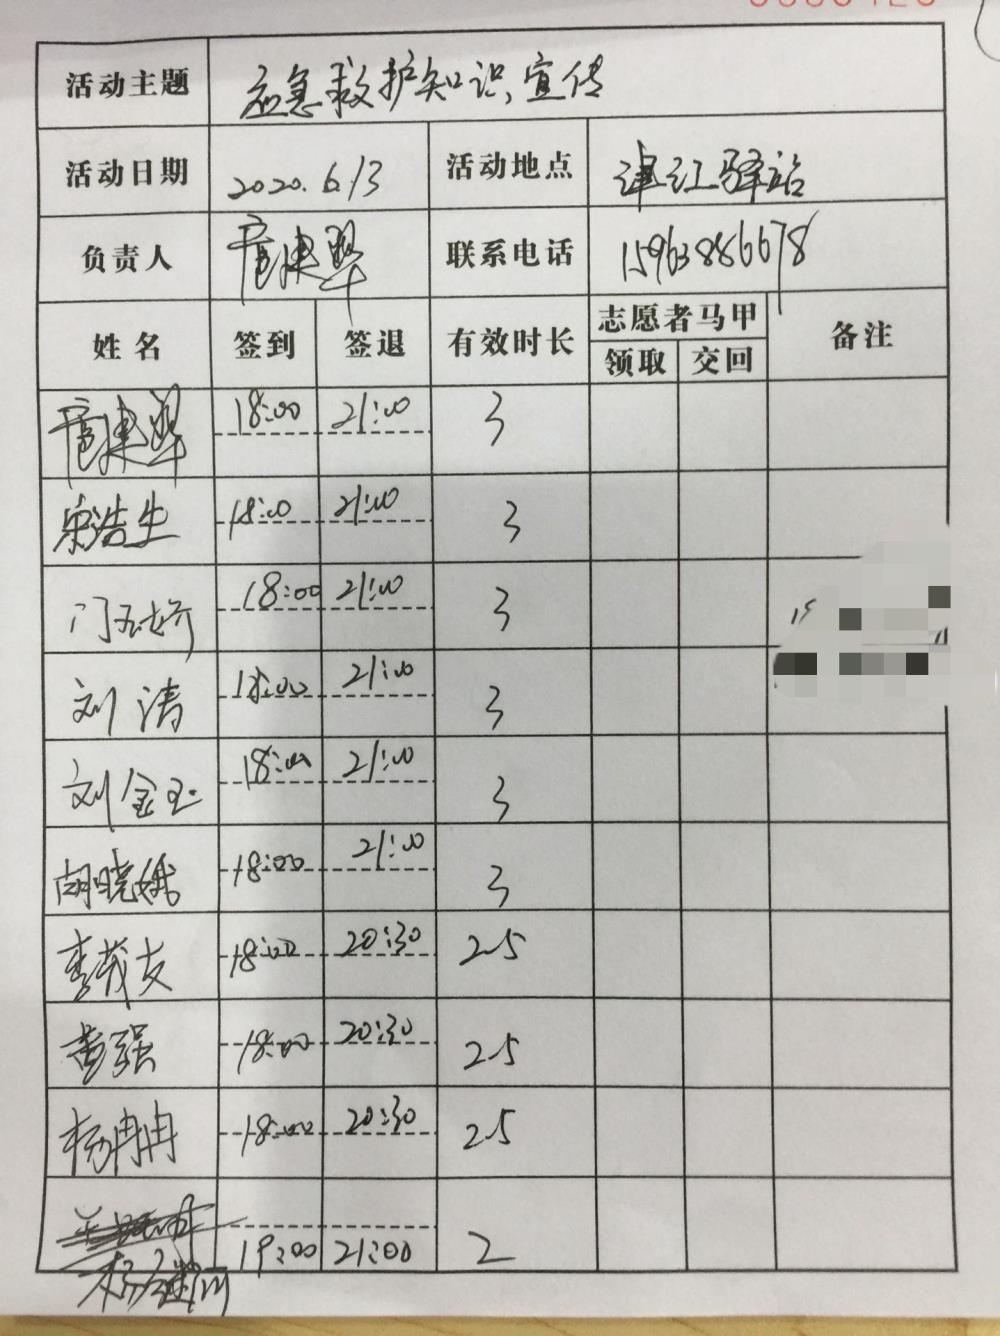 活动主题 应急救护知识宣传
活动日期 2020.6.13 活动地点 津江驿站
负责人 联系电话 15963886678
姓名 签到 签退 有效时长 志愿者马甲 备注
领取 交回
18:00 21:00 3
宋浩生 18:00 21:00 3
18:00 21:00 3
刘涛 18:00 21:00 3
刘金玉 18:00 21:00 3
胡晓娥 18:00 21:00 3
李茂友 18:00 20:30 2.5
黄强 18:00 20:30 2.5
杨冉冉 18:00 20:30 2.5
19:00 21:00 2